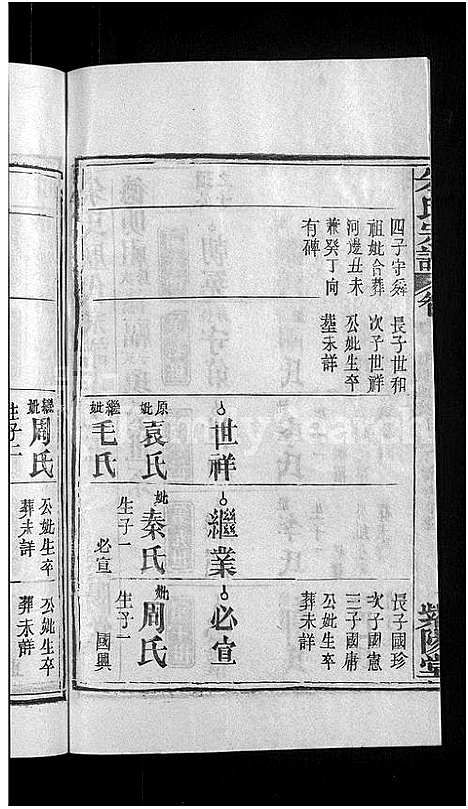 氏宗譜 卷
紫陽堂
四子守舜
祖妣合葬
河邊丑未
兼癸丁向
有碑
長子世和
次子世祥
公妣生卒
塟未詳
世祥
原妣袁氏
繼妣毛氏
繼業
妣秦氏
生子一
必宣
長子國珍
次子國憲
三子國庸
公妣生卒
葬未詳
必宣
妣周氏
生子一
國興
繼妣周氏
生子二
公妣生卒
葬未詳
公妣生卒
葬未詳